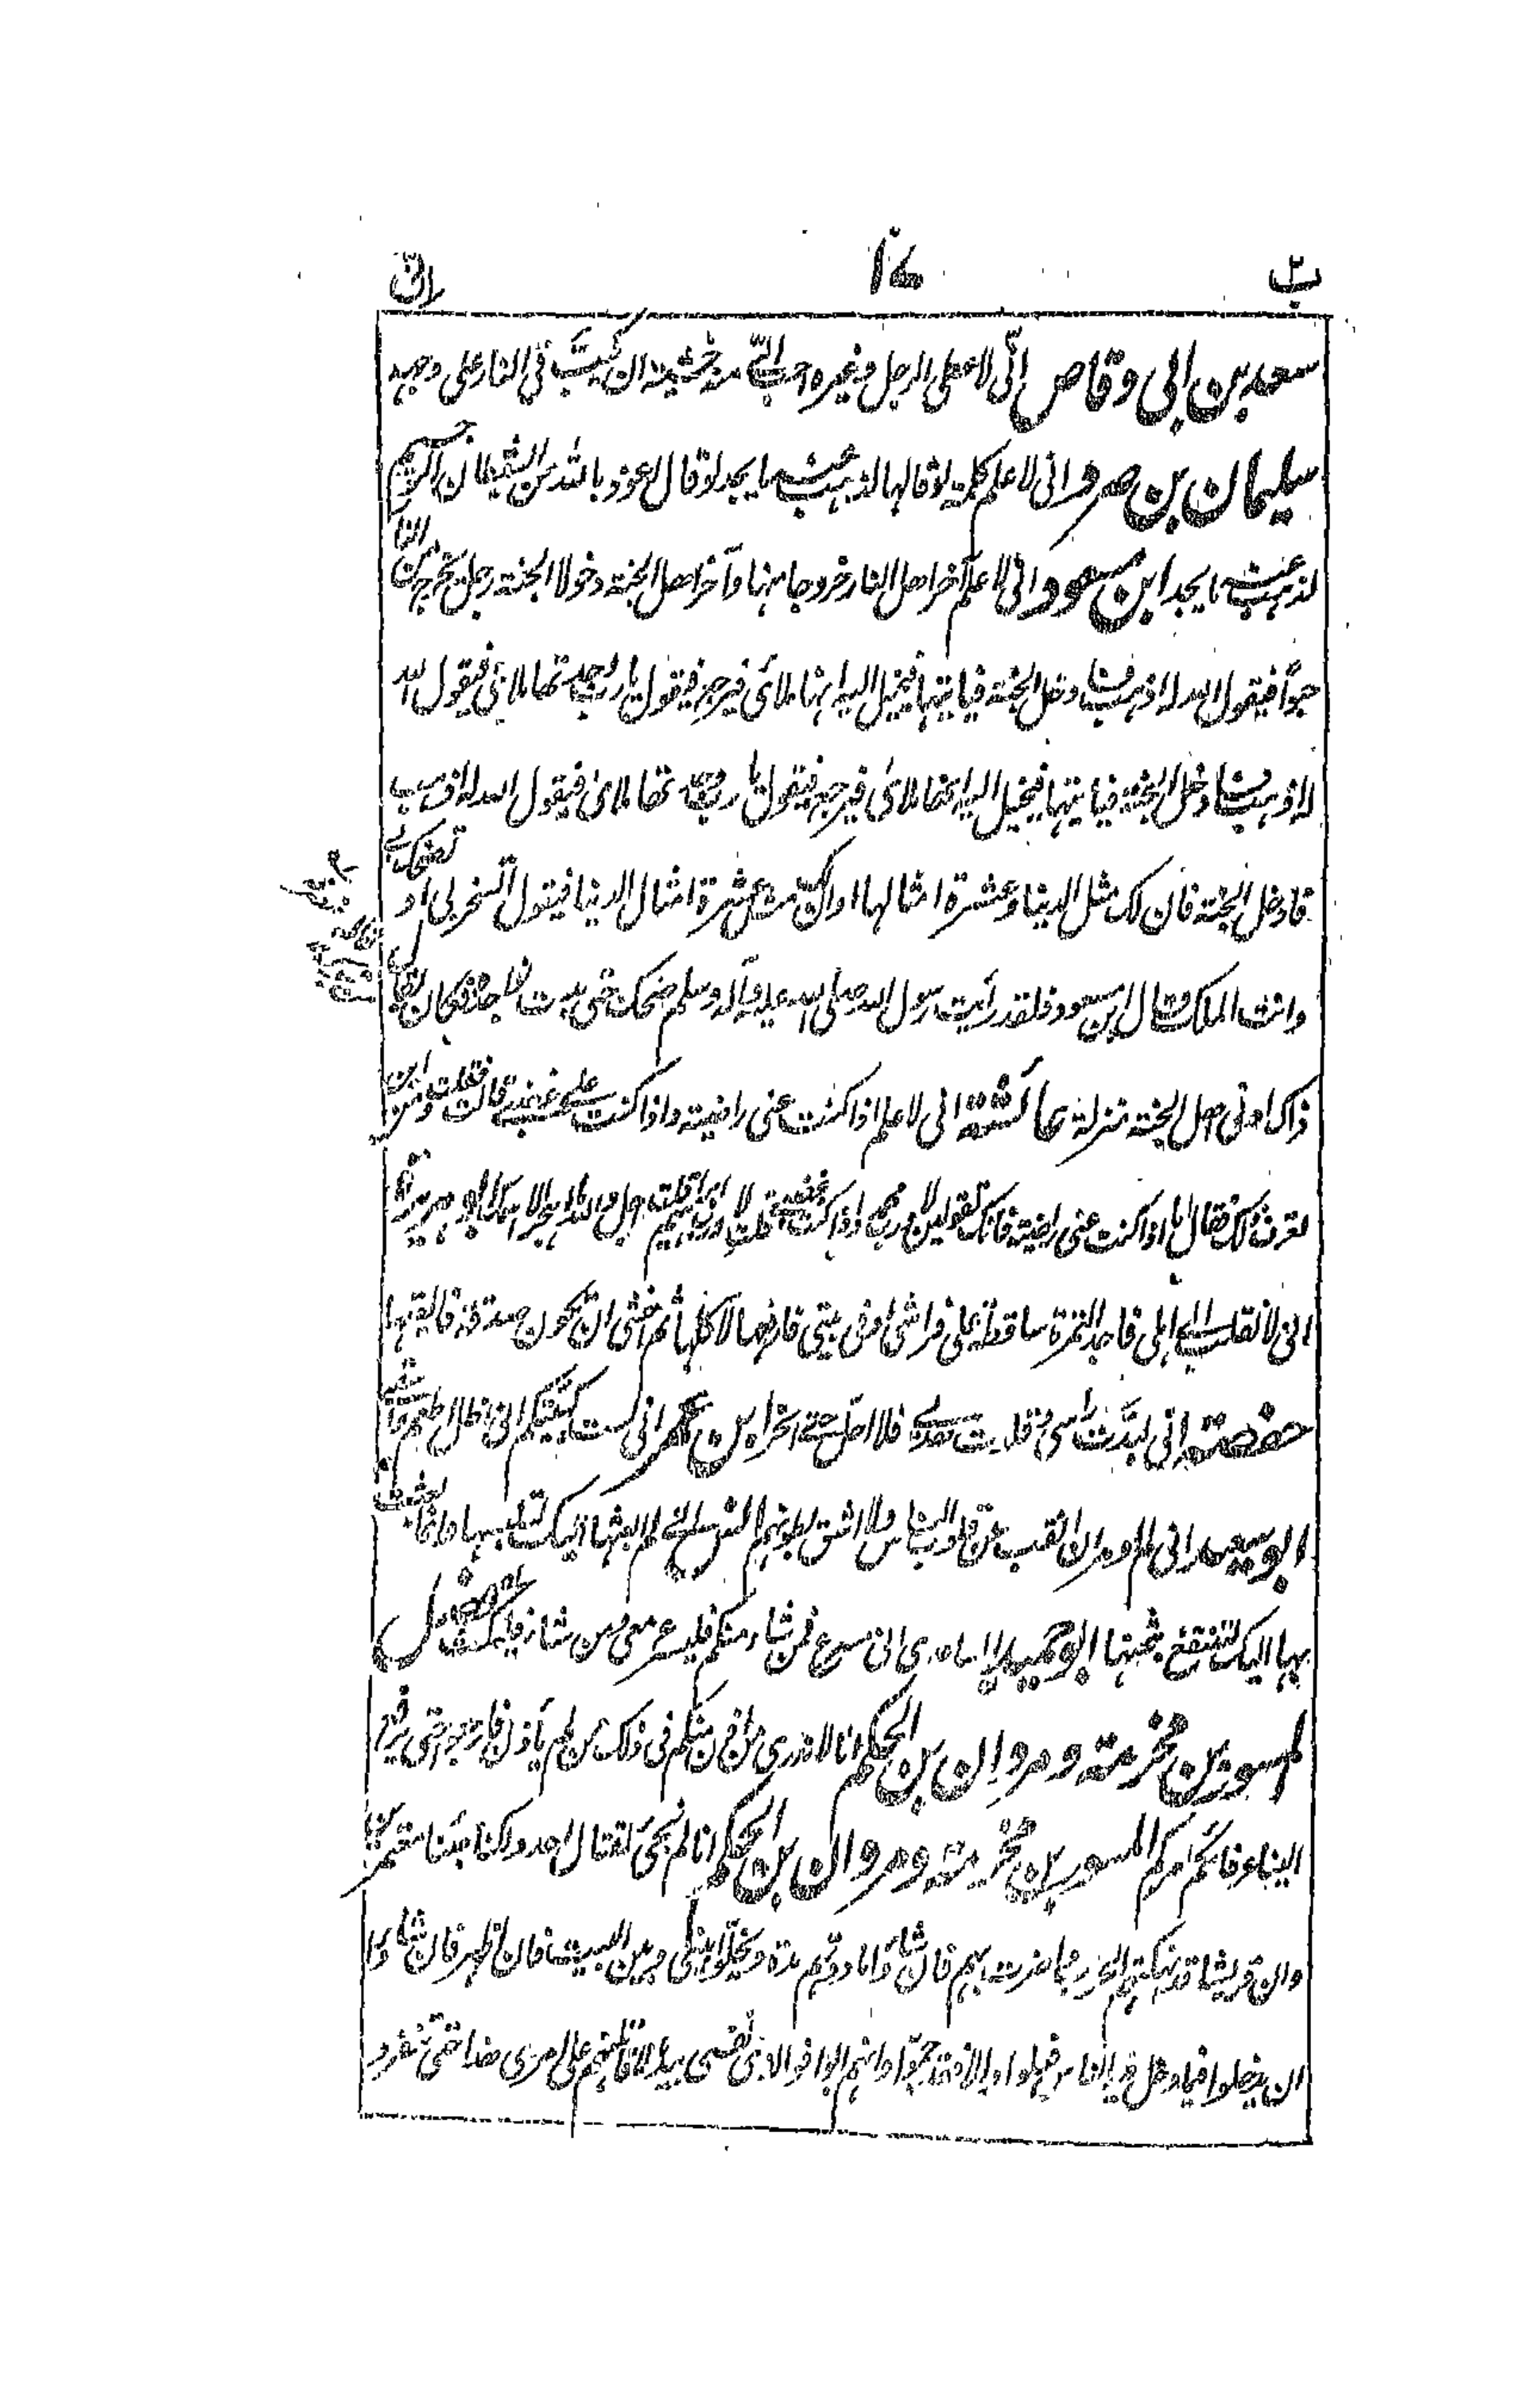 ب٢ ١٤ انی
سعد بن ابی وقاص انّی لاعطی الرجل وغیره احب الیّ منه خشیة ان یُکَبَّ فی النار علی وجهه
سلیمان بن صرد انی لاعلم کلمة لو قالها لذهب عنه ما یجد لو قال اعوذ بالله من الشیطان الرجیم
لذهب عنه ما یجد ابن مسعود انی لاعلم آخر اهل النار خروجا منها وآخر اهل الجنة دخولا الجنة رجل یخرج من النار
حبوًا فیقول الله له اذهب فادخل الجنة فیاتیها فیخیل الیه انها ملأی فیرجع فیقول یا رب وجدتها ملأی فیقول الله
له اذهب فادخل الجنة فیاتیها فیخیل الیه انها ملأی فیرجع فیقول یا رب وجدتها ملأی فیقول الله له اذهب
فادخل الجنة فان لک مثل الدنیا وعشرة امثالها او ان لک مثل عشرة امثال الدنیا فیقول أتسخر بی او تضحک بی
وانت الملک فقال ابن مسعود فلقد رأیت رسول الله صلی الله علیه وآله وسلم ضحک حتی بدت نواجذه فکان یقال
ذاک ادنی اهل الجنة منزلة عائشة انی لاعلم اذا کنت عنی راضیة واذا کنت علیّ غضبی قالت فقلت ومن این
تعرف ذلک فقال اما اذا کنت عنی راضیة فانک تقولین لا ورب محمد واذا کنت غضبی قلت لا ورب ابراهیم قلت اجل والله ما اهجر الا اسمک ابو هریرة
انی لانقلب الی اهلی فاجد التمرة ساقطة علی فراشی او فی بیتی فارفعها لآکلها ثم اخشی ان تکون صدقة فالقیها
حفصة انی لبَّدت راسی وقلدت هدیی فلا احل حتی انحر ابن عمر انی لست کهیئتکم انی اظل اطعم واسقی
ابو سعید انی لم اومر ان انقب عن قلوب الناس ولا اشق بطونهم انس انی لم ابعثها الیک لتلبسها وانما بعثت
بها الیک لتنتفع بثمنها ابو حمید الساعدی انی مسرع فمن شاء منکم فلیسرع معی ومن شاء فلیمکث فصل
المسور بن مخرمة ومروان بن الحکم انا لا ندری من اذن منکم فی ذلک ممن لم یأذن فارجعوا حتی یرفع
الینا عرفاؤکم امرکم المسور بن مخرمة ومروان بن الحکم انا لم نجئ لقتال احد ولکنا جئنا معتمرین
وان قریشا قد نهکتهم الحرب واضرت بهم فان شاؤا ماددتهم مدة ویخلّوا بینی وبین البیت فان اظهر فان شاؤا
ان یدخلوا فیما دخل فیه الناس فعلوا والا فقد جمّوا وان هم ابوا فوالذی نفسی بیده لاقاتلنهم علی امری هذا حتی تنفرد